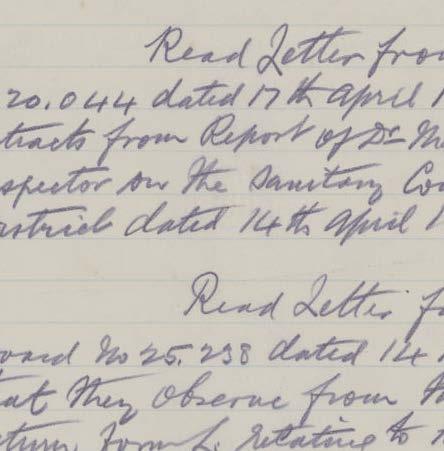 Read Letter from
20.044 dated 17th April 1
tracts from Report of Dr
spector on the Sanitary Con
istrict dated 14th April 1
Read Letter fr
oard No 25.238 dated 14
at they observe from th
eturn Form L. relating to